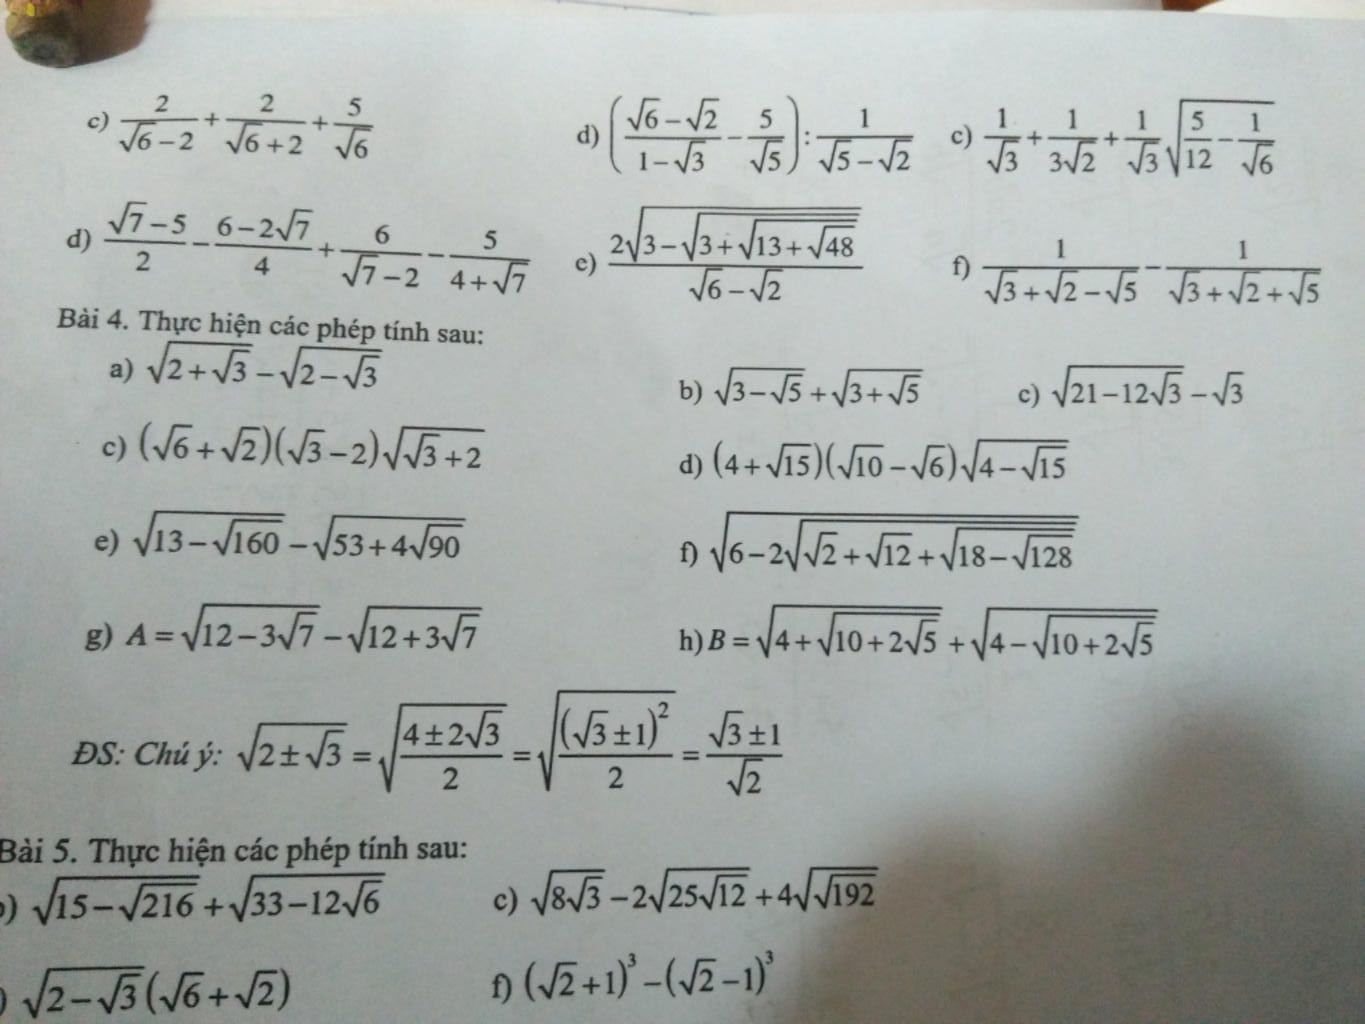 c) 2/(√6 − 2) + 2/(√6 + 2) + 5/√6 d) ((√6 − √2)/(1 − √3) − 5/√5) : 1/(√5 − √2) c) 1/√3 + 1/(3√2) + 1/√3 √(5/12 − 1/√6)
d) (√7 − 5)/2 − (6 − 2√7)/4 + 6/(√7 − 2) − 5/(4 + √7) e) 2√(3 − √(3 + √(13 + √48)))/(√6 − √2) f) 1/(√3 + √2 − √5) − 1/(√3 + √2 + √5)
Bài 4. Thực hiện các phép tính sau:
a) √(2 + √3) − √(2 − √3) b) √(3 − √5) + √(3 + √5) c) √(21 − 12√3) − √3
c) (√6 + √2)(√3 − 2)√(√3 + 2) d) (4 + √15)(√10 − √6)√(4 − √15)
e) √(13 − √160) − √(53 + 4√90) f) √(6 − 2√(√2 + √12 + √(18 − √128)))
g) A = √(12 − 3√7) − √(12 + 3√7) h) B = √(4 + √(10 + 2√5)) + √(4 − √(10 + 2√5))
ĐS: Chú ý: √(2 ± √3) = √((4 ± 2√3)/2) = √((√3 ± 1)²/2) = (√3 ± 1)/√2
Bài 5. Thực hiện các phép tính sau:
) √(15 − √216) + √(33 − 12√6) c) √(8√3) − 2√(25√12) + 4√(√192)
) √(2 − √3)(√6 + √2) f) (√2 + 1)³ − (√2 − 1)³